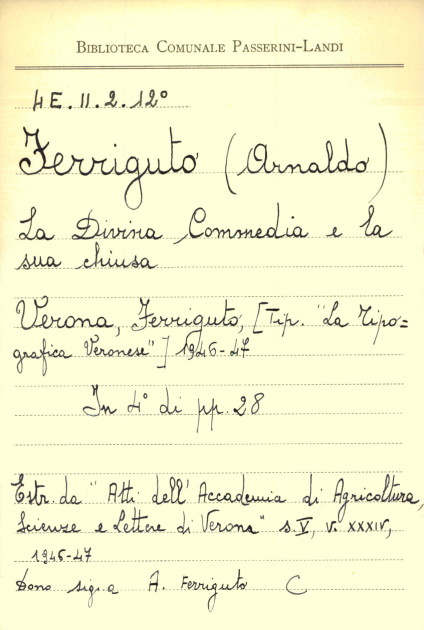 BIBLIOTECA COMUNALE PASSERINI-LANDI
4E.II.2.12°
Ferriguto (Arnaldo)
La Divina Commedia e la
sua chiusa
Verona, Ferriguto, [Tip. "La Tipo=
grafica Veronese"] 1946-47
In 4° di pp. 28
Estr. da "Atti dell'Accademia di Agricoltura,
Scienze e Lettere di Verona" s. V, v. XXXIV,
1946-47
Dono sig.a A. Ferriguto C